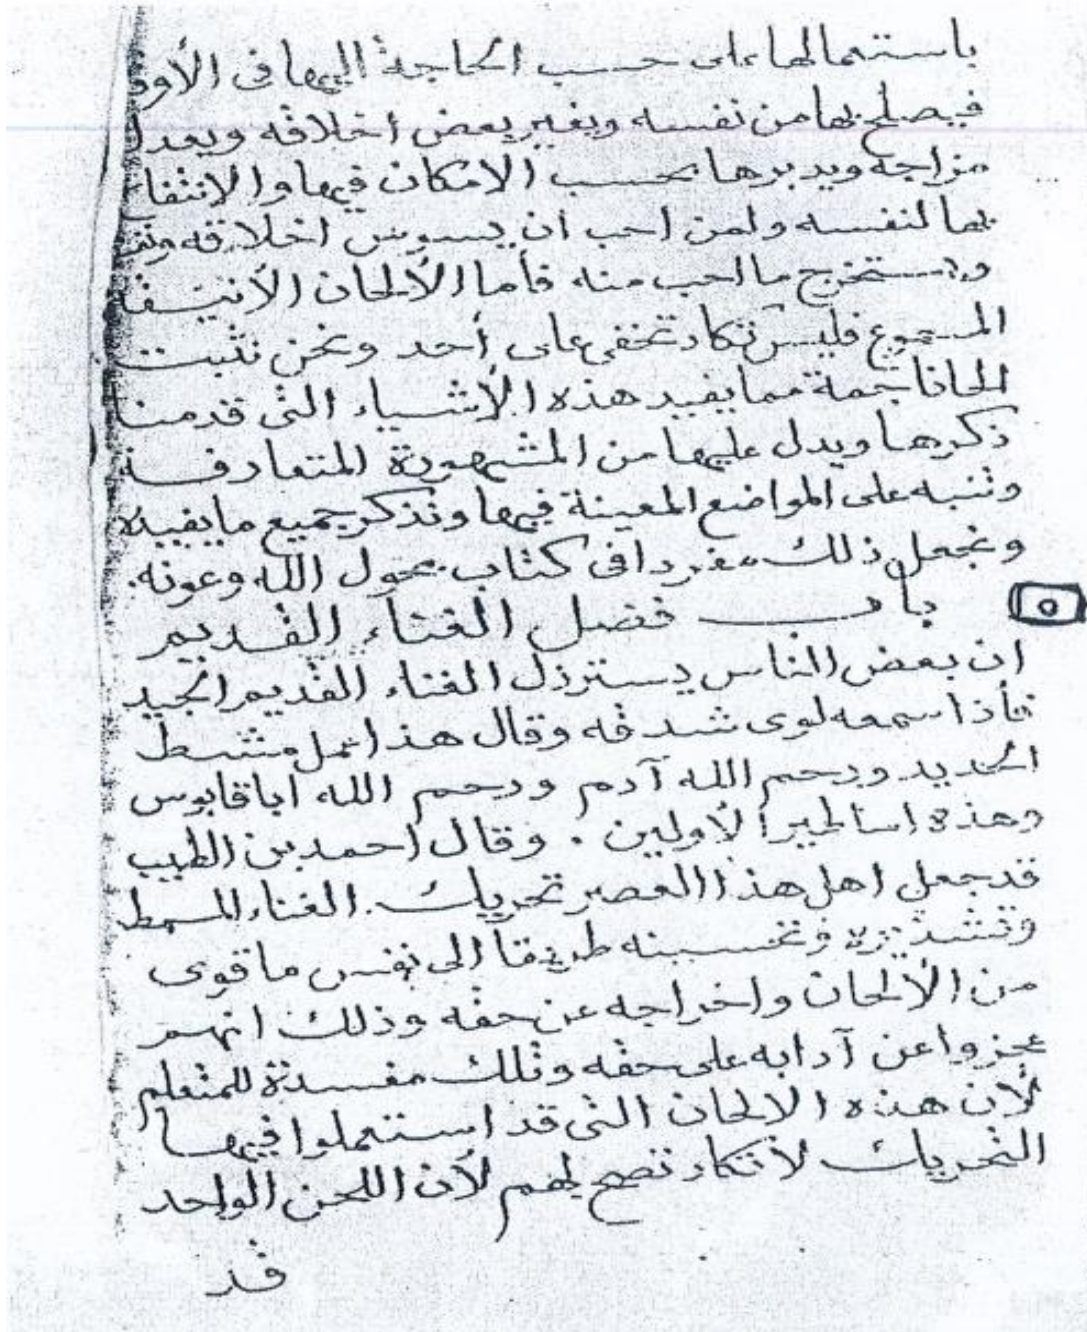 باستعمالها على حسب الحاجة اليها فى الأوق
فيصلح بها من نفسه ويغير بعض أخلاقه ويعدل
مزاجه ويدبرها بحسب الامكان فيها والانتفاع
بها لنفسه ولمن احب ان يسوس اخلاقه
ويستخرج ما احب منه فأما الألحان الأنيقة
المسموع فليس تكاد تخفى على أحد ونحن نثبت
الحانا جمة مما يفيد هذه الأشياء التى قدمنا
ذكرها ويدل عليها من المشهورة المتعارفة
وننبه على المواضع المعينة فيها ونذكر جميع ما يفيده
ونجعل ذلك مفردا فى كتاب بحول الله وعونه.
٥ باب فضل الغناء القديم
ان بعض الناس يسترذل الغناء القديم الجيد
فأذا سمعه لوى شدقه وقال هذا عمل مشط
الحديد ورحم الله آدم ورحم الله اباقابوس
وهذه اساطير الأولين . وقال احمد بن الطيب
قد جعل اهل هذا العصر تحريك الغناء المسمط
وتحسينه طريقا الى ما قوى
من الألحان واخراجه عن حقه وذلك انهم
عجزوا عن آدابه على حقه وتلك مفسدة للمتعلم
لأن هذه الالحان التى قد استعملوا فيها
التحريك لا تكاد تصح لهم لأن اللحن الواحد
قد